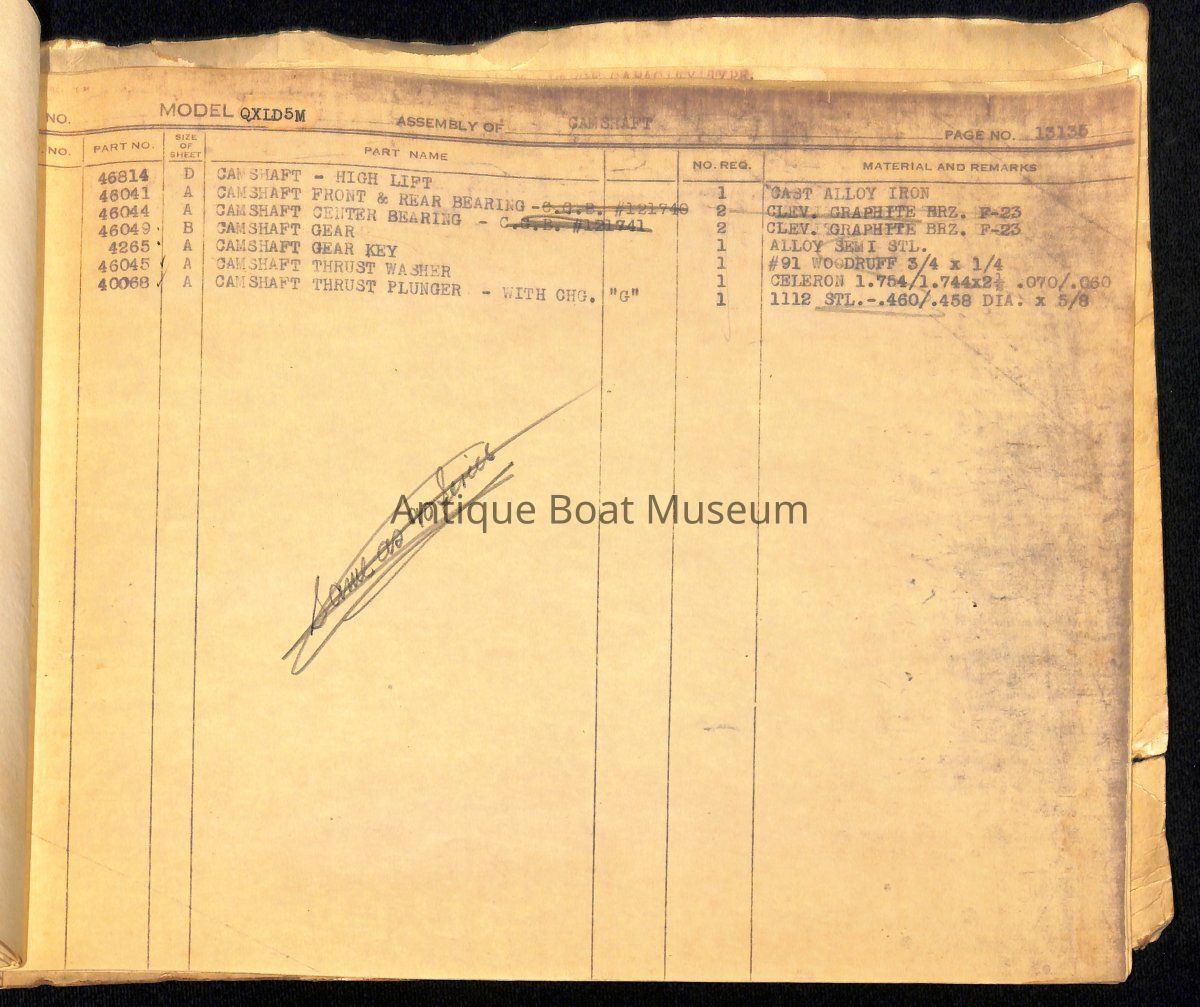 NO. MODEL QXLD5M ASSEMBLY OF CAMSHAFT PAGE NO. 13135
NO. PART NO. SIZE OF SHEET PART NAME NO. REQ. MATERIAL AND REMARKS
46814 D CAMSHAFT - HIGH LIFT 1 CAST ALLOY IRON
46041 A CAMSHAFT FRONT & REAR BEARING -C.G.B. #121740 2 CLEV. GRAPHITE BRZ. F-23
46044 A CAMSHAFT CENTER BEARING - C.G.B. #121741 2 CLEV. GRAPHITE BRZ. F-23
46049 B CAMSHAFT GEAR 1 ALLOY SEMI STL.
4265 A CAMSHAFT GEAR KEY 1 #91 WOODRUFF 3/4 x 1/4
46045 A CAMSHAFT THRUST WASHER 1 CELERON 1.754/1.744x2¼ .070/.060
40068 A CAMSHAFT THRUST PLUNGER - WITH CHG. "G" 1 1112 STL.-.460/.458 DIA. x 5/8
Same as
Antique Boat Museum